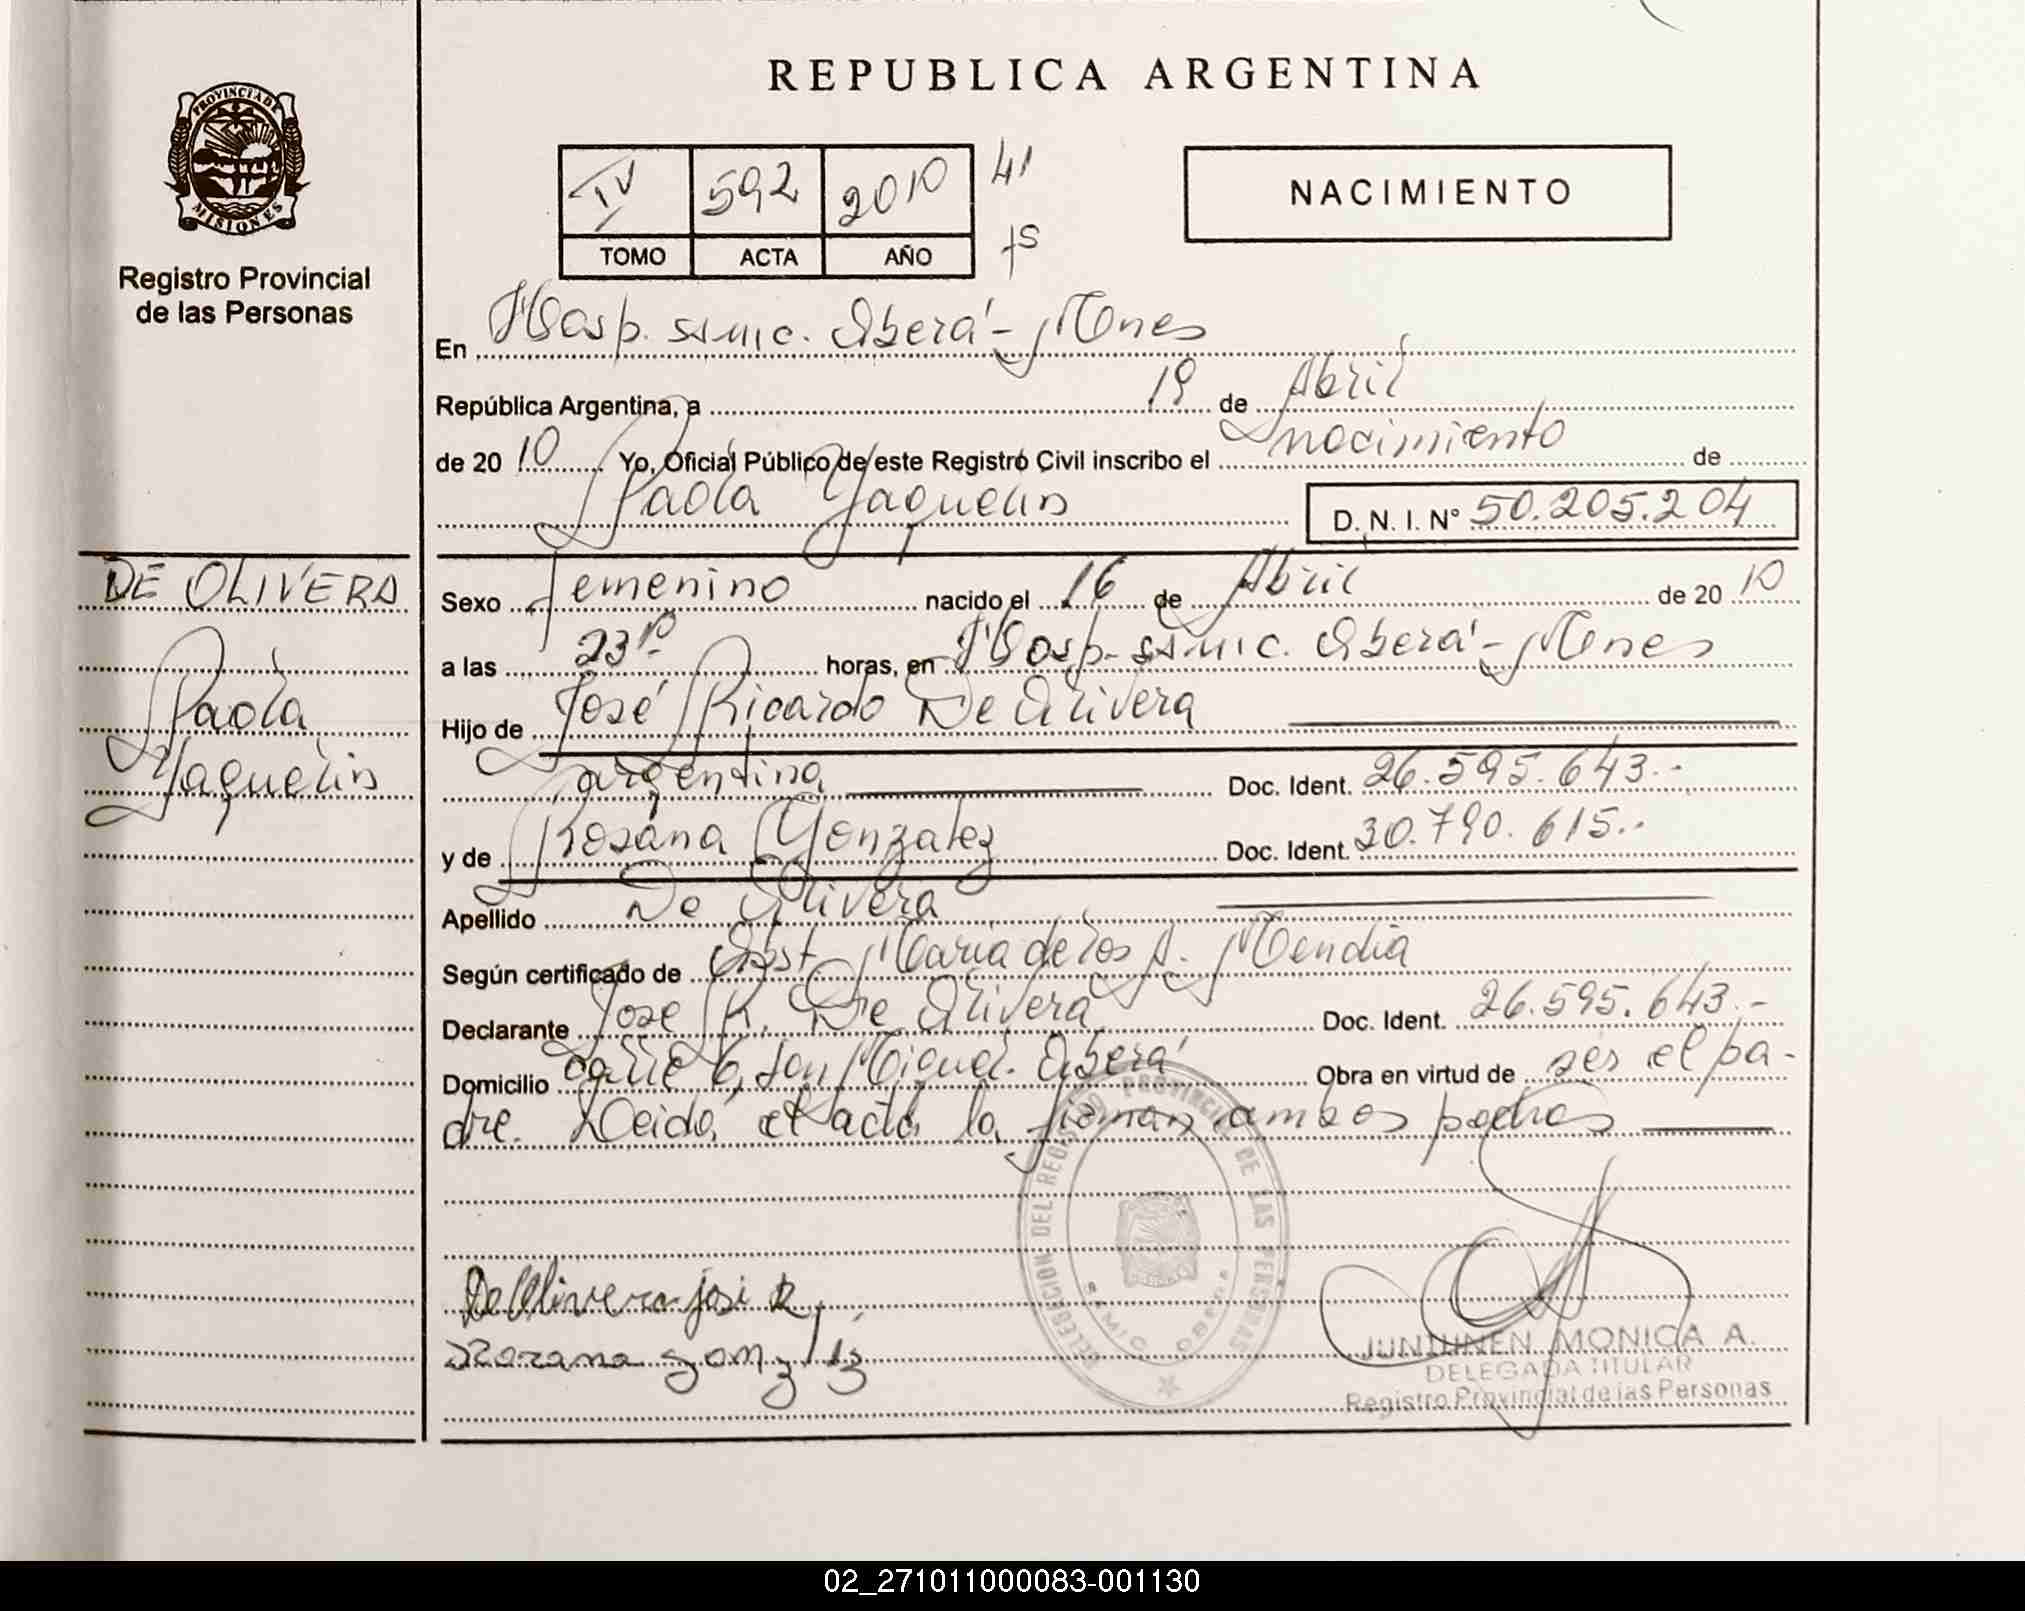 REPUBLICA ARGENTINA
PROVINCIA DE
MISIONES
Registro Provincial
de las Personas
IV 592 2010 41
TOMO ACTA AÑO fs
NACIMIENTO
En Hosp. ssmic. Oberá - Mnes
República Argentina, a 19 de Abril
de 20 10 Yo, Oficial Público de este Registro Civil inscribo el nacimiento de
Paola Yaquelin D. N. I. N° 50.205.204
DE OLIVERA
Paola
Yaquelin
Sexo Femenino nacido el 16 de Abril de 20 10
a las 23 10 horas, en Hosp. ssmic. Oberá - Mnes
Hijo de José Ricardo De Olivera
argentina Doc. Ident. 26.595.643.-
y de Rosana Gonzalez Doc. Ident. 30.790.615.-
Apellido De Olivera
Según certificado de Obst. Maria de los A. Mendia
Declarante Jose R. De Olivera Doc. Ident. 26.595.643.-
Domicilio Calle 6, San Miguel. Oberá Obra en virtud de ser el pa-
dre. Leida el acta la firman ambos padres
DELEGACION DEL REGISTRO PROVINCIAL DE LAS PERSONAS
De Olivera josi R
Rozana gonzalez
JUNTUNEN MONICA A.
DELEGADA TITULAR
Registro Provincial de las Personas
02_271011000083-001130